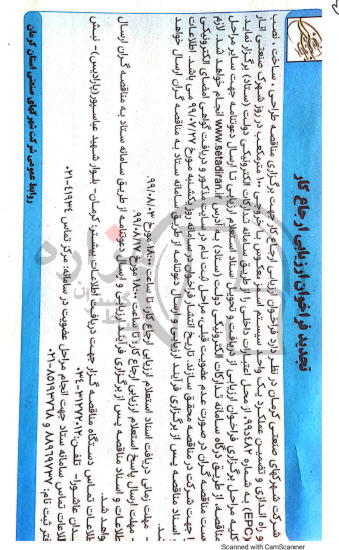 تجدید فراخوان ارزیابی ارجاع کار
شرکت شهرکهای صنعتی کرمان در نظر دارد فراخوان ارزیابی ارجاع کار جهت برگزاری مناقصه طراحی ، ساخت ، نصب
و راه اندازی و تضمین عملکرد یک واحد سیستم اسمز معکوس با خروجی ۱۰۰ مترمکعب در روز شهرک صنعتی انار
(EPC) به شماره ۹۹د۴۸۲، از محل اعتبارات داخلی را از طریق سامانه تدارکات الکترونیکی دولت (ستاد) برگزار نماید.
کلیه مراحل برگزاری فراخوان ارزیابی از دریافت و تحویل اسناد استعلام ارزیابی تا ارسال دعوتنامه جهت سایر مراحل
مناقصه، از طریق درگاه سامانه تدارکات الکترونیکی دولت (ستاد) به آدرس www.setadiran.ir انجام خواهد شد. لازم
ست مناقصه گران در صورت عدم عضویت قبلی، مراحل ثبت نام در سایت مذکور و دریافت گواهی امضای الکترونیکی
ا جهت شرکت در مناقصه محقق سازند. تاریخ انتشار فراخوان در سامانه روز یکشنبه مورخ ۹۹/۰۷/۲۷ می باشد. اطلاعات
و اسناد مناقصه پس از برگزاری فرآیند ارزیابی و ارسال دعوتنامه از طریق سامانه ستاد به مناقصه گران ارسال خواهد
شد.
- مهلت زمانی دریافت اسناد استعلام ارزیابی ارجاع کار: تا ساعت ۱۸:۰۰ مورخ ۹۹/۰۸/۰۳.
- مهلت ارسال پاسخ استعلام ارزیابی ارجاع کار: تا ساعت ۱۸:۰۰ مورخ ۹۹/۰۸/۱۷.
طلاعات و اسناد مناقصه پس از برگزاری فرآیند ارزیابی و ارسال دعوتنامه از طریق سامانه ستاد به مناقصه گران ارسال
واهد شد.
طلاعات تماس دستگاه مناقصه گزار جهت دریافت اطلاعات بیشتر: کرمان- بلوار شهید عباسپور(پارادیس)- نبش
یدان عاشورا- تلفن:۳۱۲۷۲۰۱۲-۰۳۴
للاعات تماس سامانه ستاد جهت انجام مراحل عضویت در سامانه: مرکز تماس ۴۱۹۳۴-۰۲۱
فتر ثبت نام: ۸۸۹۶۹۷۳۷ و ۸۵۱۹۳۷۶۸-۰۲۱
روابط عمومی شرکت شهرکهای صنعتی استان کرمان
Scanned with CamScanner